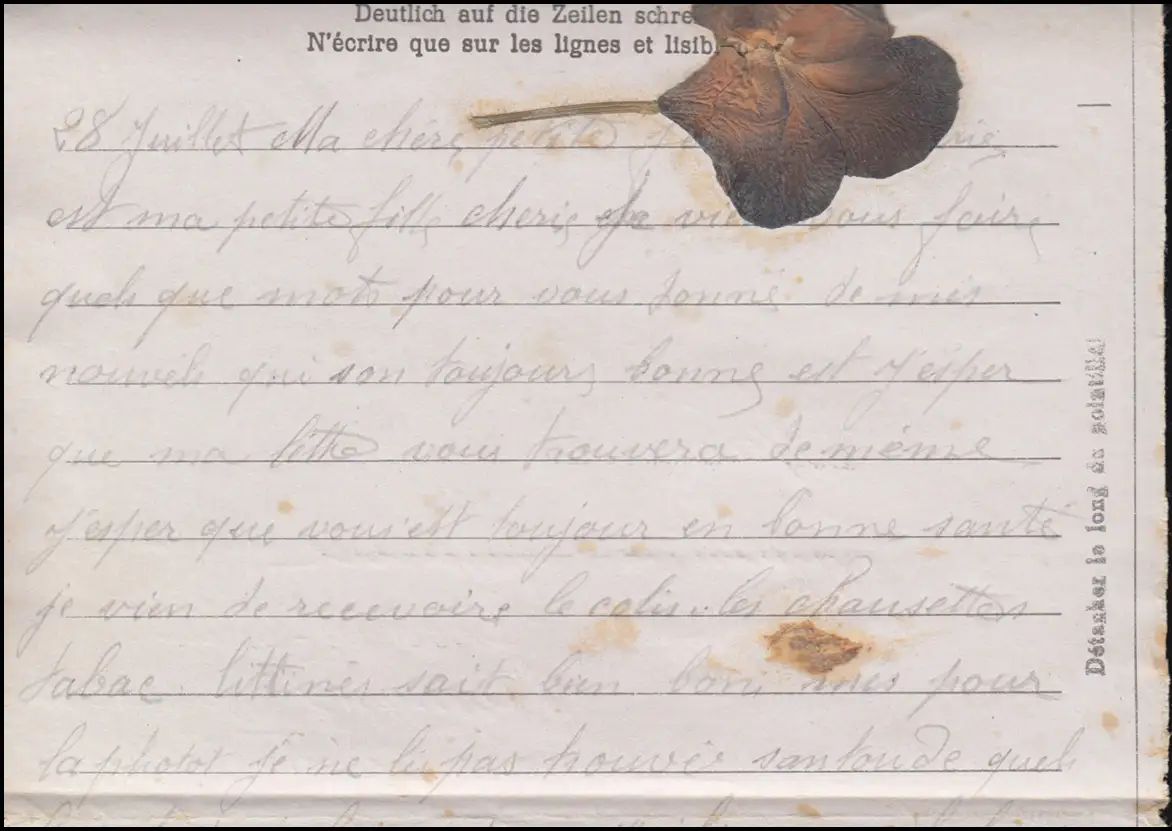 Deutlich auf die Zeilen schre
N'écrire que sur les lignes et lisib
28 Juillet Ma chère petite
est ma petite fille cherie je vous faire
quels que mots pour vous donné de mes
nouvels qui son toujours bonne est J'esper
que ma lettre vous trouvera de même
J'esper que vous est toujour en bonne santé
je vien de recevoire le colis les chausettes
tabac sait bien bon mes pour
la photot je ne lé pas trouvér quels
Détacher le long du pointillé!